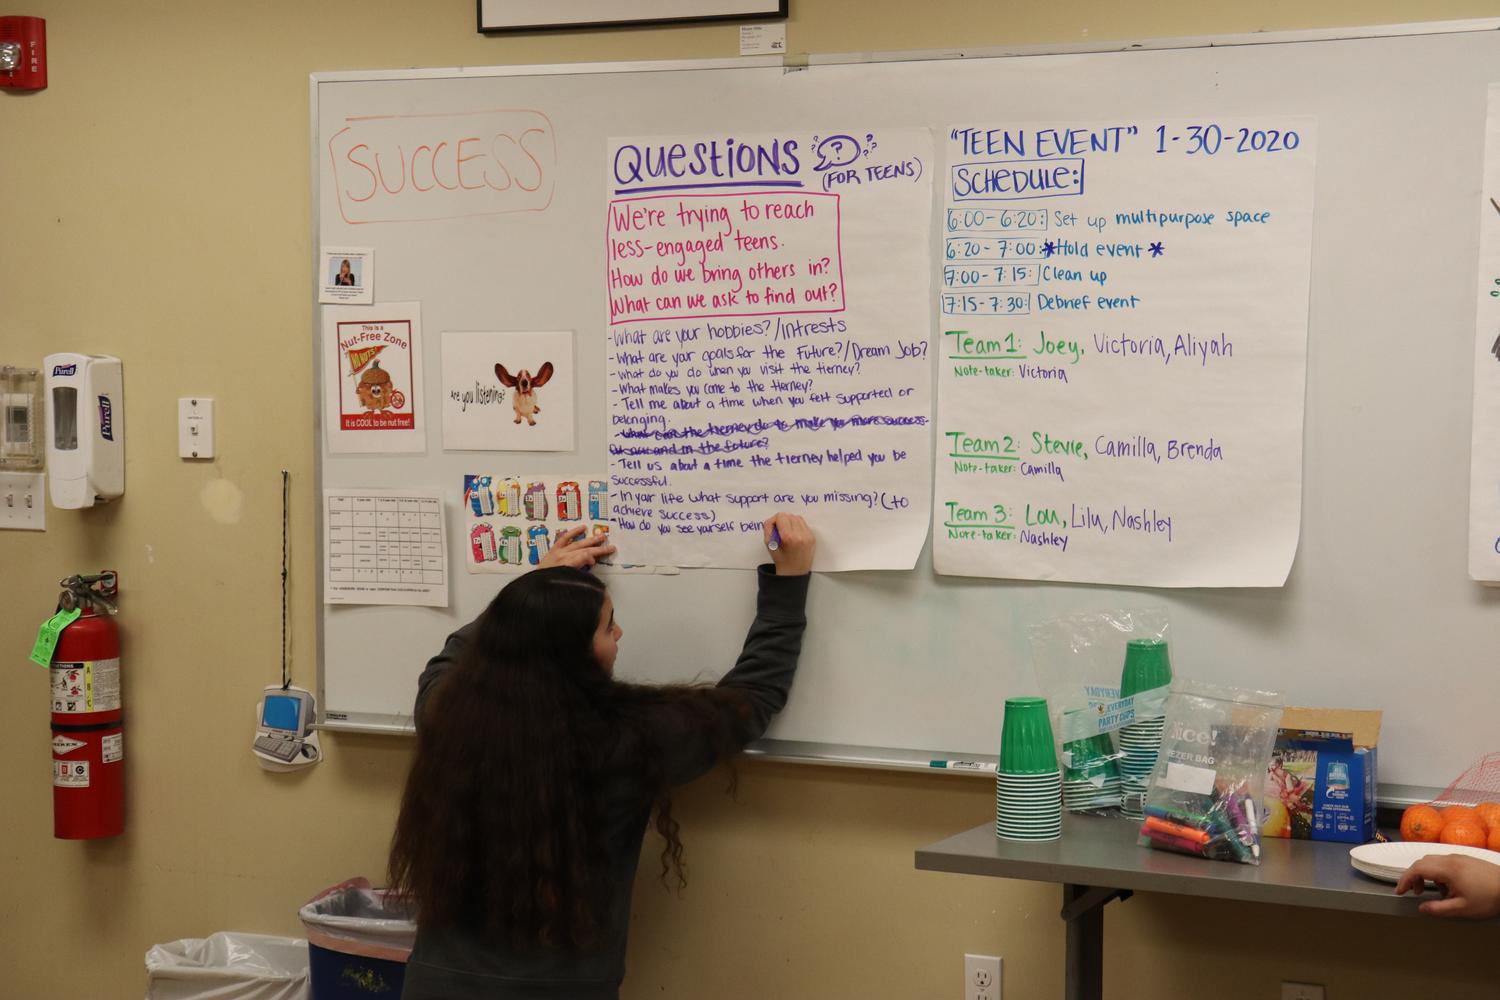 FIRE
SUCCESS
QUESTIONS
(FOR TEENS)
We're trying to reach
less-engaged teens.
How do we bring others in?
What can we ask to find out?
- What are your hobbies?/Intrests
- What are your goals for the Future?/Dream Job?
- What do you do when you visit the tierney?
- What makes you come to the tierney?
- Tell me about a time when you felt supported or
belonging.
- Tell us about a time the tierney helped you be
successful.
- In your life what support are you missing? (to
achieve success)
- How do you see yourself bein
"TEEN EVENT" 1-30-2020
SCHEDULE:
6:00-6:20: Set up multipurpose space
6:20-7:00: *Hold event *
7:00-7:15: Clean up
7:15-7:30: Debrief event
Team 1: Joey, Victoria, Aliyah
Note-taker: Victoria
Team 2: Stevie, Camilla, Brenda
Note-taker: Camilla
Team 3: Lou, Lilu, Nashley
Note-taker: Nashley
This is a
Nut-Free Zone
It is COOL to be nut free!
Are you listening?
Purell
Purell
EVERYDAY
PARTY CUPS